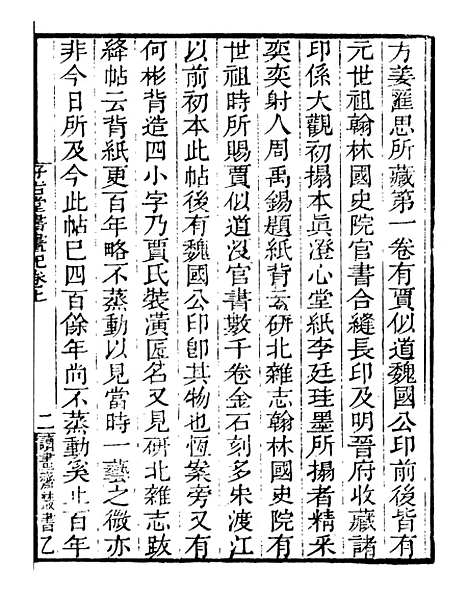 方姜滙思所藏第一卷有賈似道魏國公印前後皆有
元世祖翰林國史院官書合縫長印及明晉府收藏諸
印係大觀初搨本眞澄心堂紙李廷珪墨所搨者精采
奕奕射人周禹錫題紙背云研北雜志翰林國史院有
世祖時所賜賈似道沒官書數千卷金石刻多朱渡江
以前初本此帖後有魏國公印卽其物也恆案旁又有
何彬背造四小字乃賈氏裝潢匠名又見研北雜志跋
絳帖云背紙更百年略不蒸動以見當時一藝之微亦
非今日所及今此帖巳四百餘年尚不蒸動奚止百年
好古堂書畫記卷上
二
讀畫齋叢書
乙